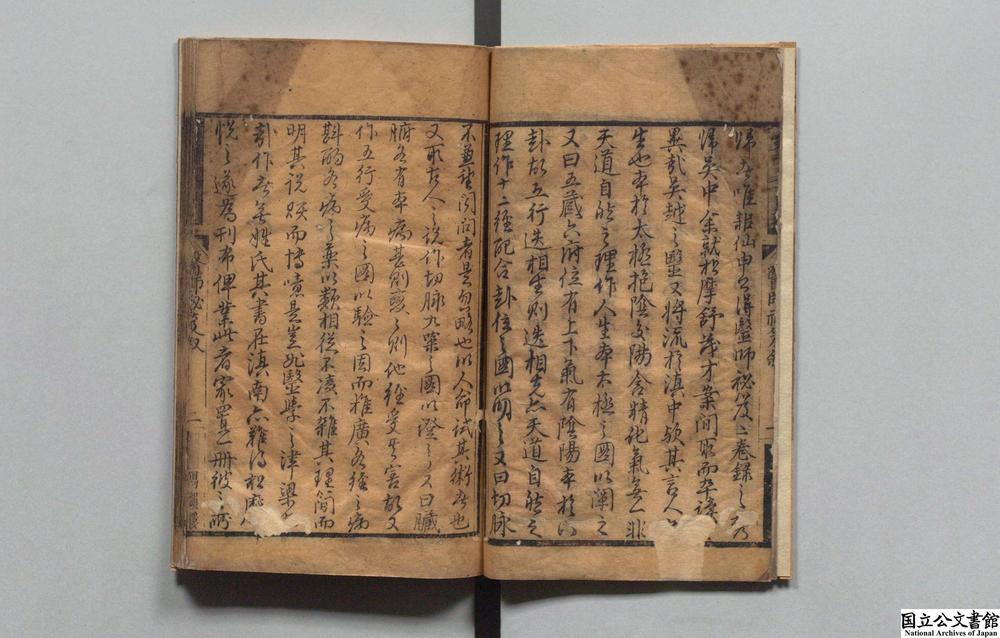 歸吾唯詔仙申公得毉師祕笈二卷錄之乃
歸吳中余就松摩舒茂才案間取而卒讀
異哉吳越之毉又將流於滇中欤其言人
生也本於太極抱陰負陽含精化氣無一非
天道自然之理作人生本太極之圖以闡之
又曰五藏六府位有上下氣有陰陽本於
卦故五行迭相生則迭相尅亦天道自然之
理作十二經配合卦位之圖以明之又曰切脉
不兼望聞問者是勿略也以人命試其術者也
又取古人之說作切脉九窾之圖以證之又曰臟
腑各有本病甚則變變則他經受其害故又
作五行受病之圖以驗之因而推廣各經之病
斟酌各病之藥以類相從不凌不雜其理簡而
明其說賅而博噫是豈非毉學之津梁
卦作者無姓氏其書在滇南亦難得松
悅之遂為刊布俾業此者家置一冊彼之所
毉師祕笈敘
二
国立公文書館
National Archives of Japan